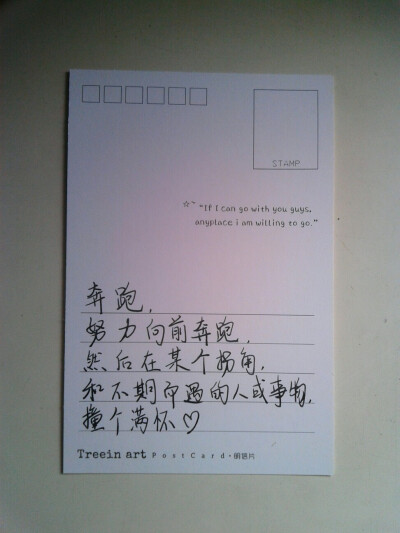 STAMP
☆~ "If I can go with you guys,
anyplace i am willing to go."
奔跑,
努力向前奔跑,
然后在某个拐角,
和不期而遇的人或事物,
撞个满怀♡
Treein art PostCard·明信片